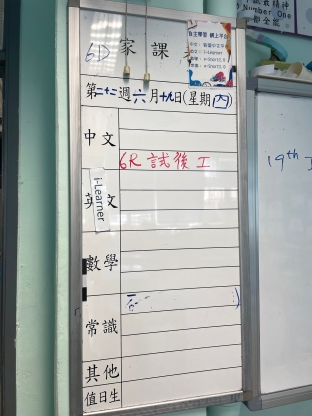 6D 家課表
自主學習 網上平台
第二十二週六月十九日(星期四)
中文
6R 試後工
英文
i-Learner
數學
常識
其他
值日生
Number One
19th